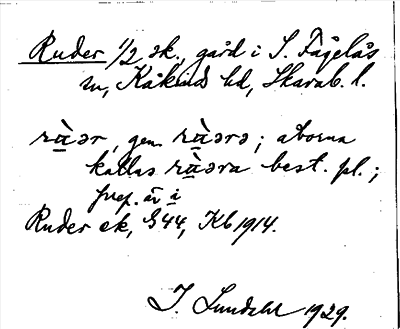 Ruder 1/2 sk., gård i S. Fågelås
sn, Kåkinds hd, Skarab. l.
rä̀ər, gen. rä̀ərs; åborna
kallas rä̀əra best. pl.;
prep. är i
Ruder ek, G44, Kb 1914.
I. Lundahl 1929.